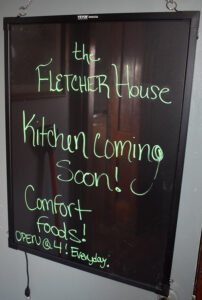 the
FLETCHER HOUSE
Kitchen Coming
Soon!
Comfort
Foods!
OPEN @ 4! Everyday!